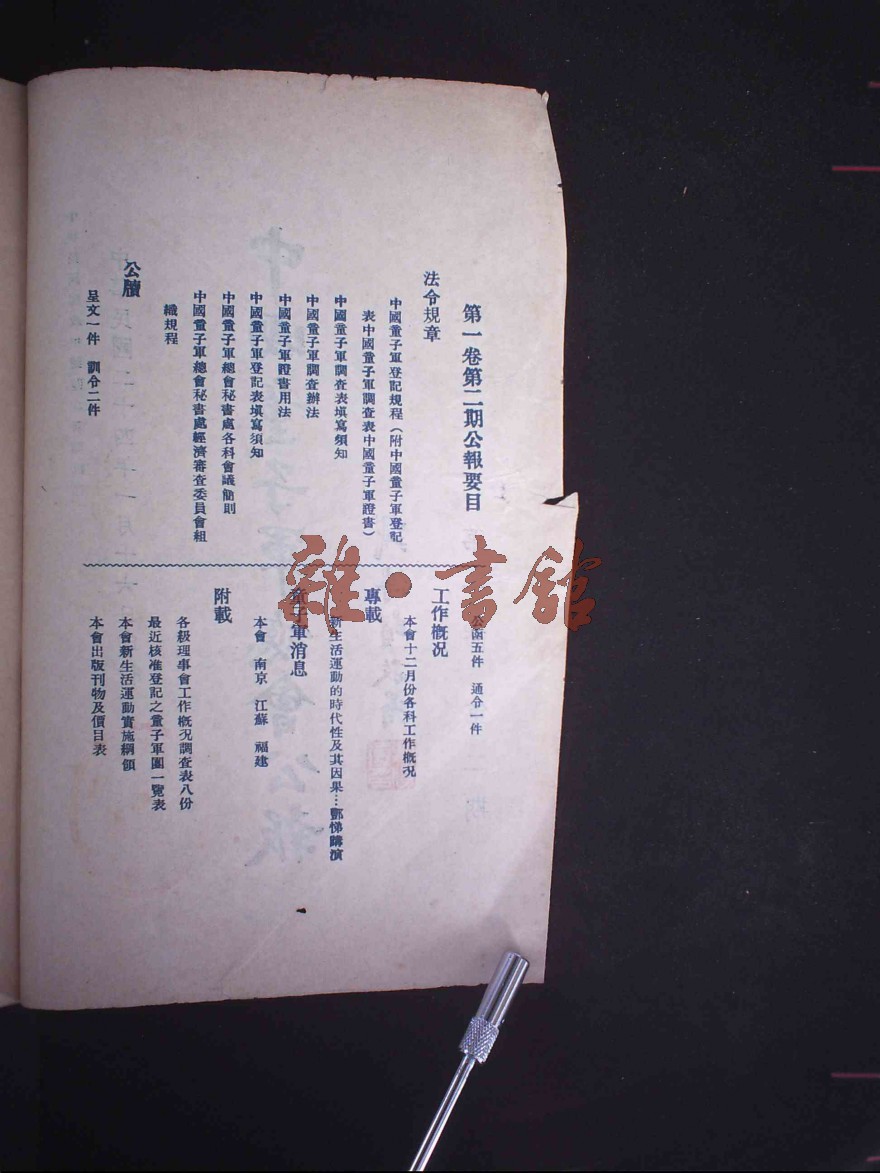 第一卷第二期公報要目
法令規章
中國童子軍登記規程(附中國童子軍登記
表中國童子軍調查表中國童子軍證書)
中國童子軍調查表填寫須知
中國童子軍調查辦法
中國童子軍證書用法
中國童子軍登記表填寫須知
中國童子軍總會秘書處各科會議簡則
中國童子軍總會秘書處經濟審查委員會組
織規程
公牘
呈文一件 訓令二件
公函五件 通令一件
工作概況
本會十二月份各科工作概況
專載
新生活運動的時代性及其因果…鄧悌講演
童子軍消息
本會 南京 江蘇 福建
附載
各級理事會工作概況調查表八份
最近核准登記之童子軍團一覽表
本會新生活運動實施綱領
本會出版刊物及價目表
雜·書館